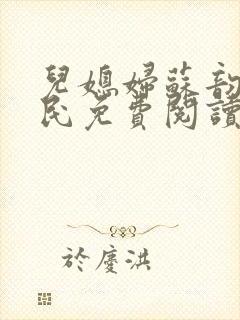 兒媳婦蘇韵
民免費閱讀
於慶洪